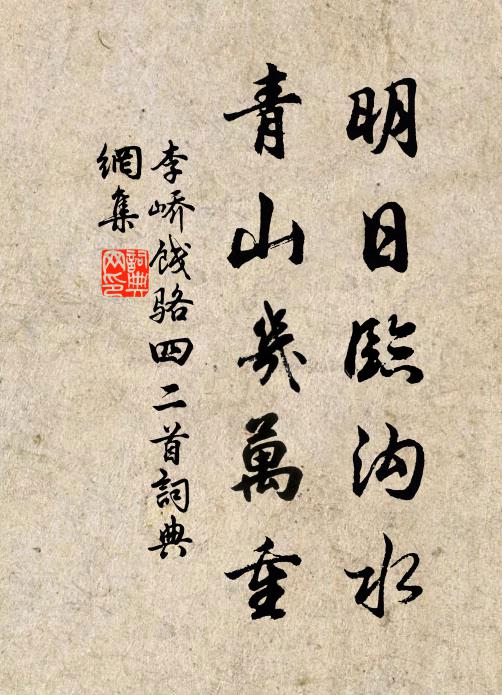 明日臨沟水
青山幾萬重
李峤餞骆四二首詞典
網集
詞典
网印